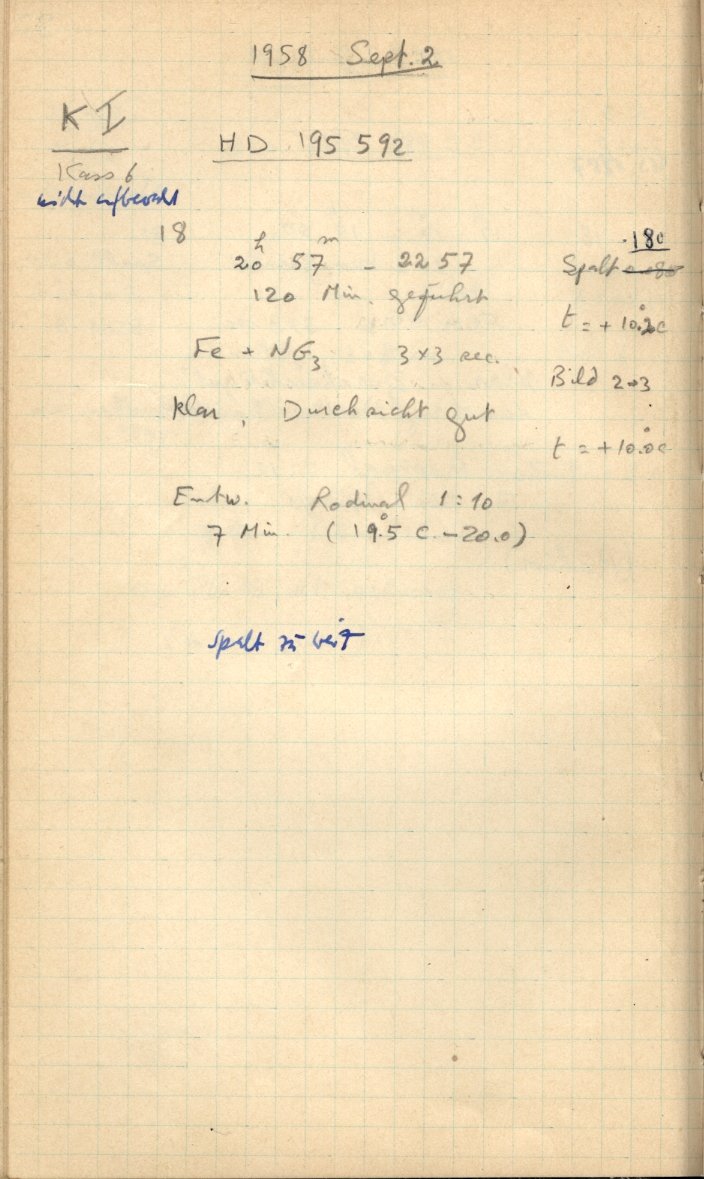 1958 Sept. 2
K I
HD 195 592
Kass 6
nicht aufbewahrt
18
20h 57m - 22 57
120 Min. geführt
Fe + NG3 3x3 sec.
klar, Durchsicht gut
.180
Spalt
t = + 10.°2c
Bild 2-3
t = +10.°0c
Entw. Rodinal 1:10
7 Min. (19.°5 C. - 20.0)
Spalt zu weit